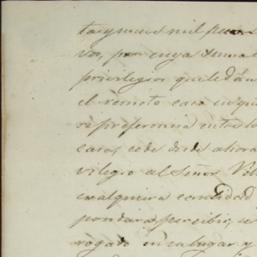 tas y mas mil pesos
va, por cuya suma
privilegios que le dán
el remoto caso in qu
re preferencia entre lo
caros, cede desde ahora
vilegio al Señor
cualquiera cantidad
pondara percibir, se
rogado en su lugar y